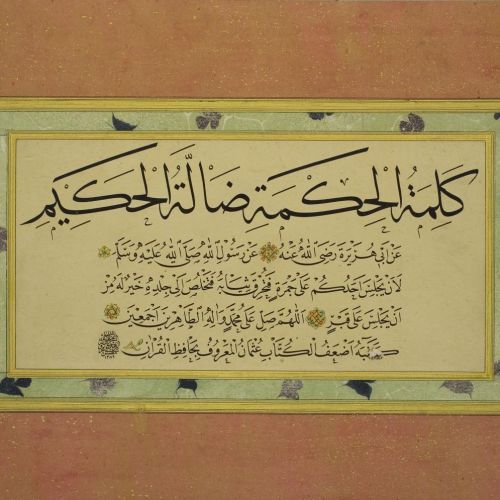 كَلِمَةُ الْحِكْمَةِ ضَالَّةُ الْحَكِيمِ
عَنْ اَبِى هُرَيْرَةَ رَضِىَ اللهُ عَنْهُ عَنْ رَسُولِ اللهِ صَلَّى اللهُ عَلَيْهِ وَسَلَّمَ
لَاَنْ يَجْلِسَ اَحَدُكُمْ عَلَى جَمْرَةٍ فَتُحْرِقَ ثِيَابَهُ فَتَخْلُصَ اِلَى جِلْدِهِ خَيْرٌ لَهُ مِنْ
اَنْ يَجْلِسَ عَلَى قَبْرٍ اَللّٰهُمَّ صَلِّ عَلَى مُحَمَّدٍ وَاٰلِهِ الطَّاهِرِينَ اَجْمَعِينَ
كَتَبَهُ اَضْعَفُ الْكُتَّابِ عُثْمَانُ الْمَعْرُوفُ بِحَافِظِ الْقُرْاٰنِ